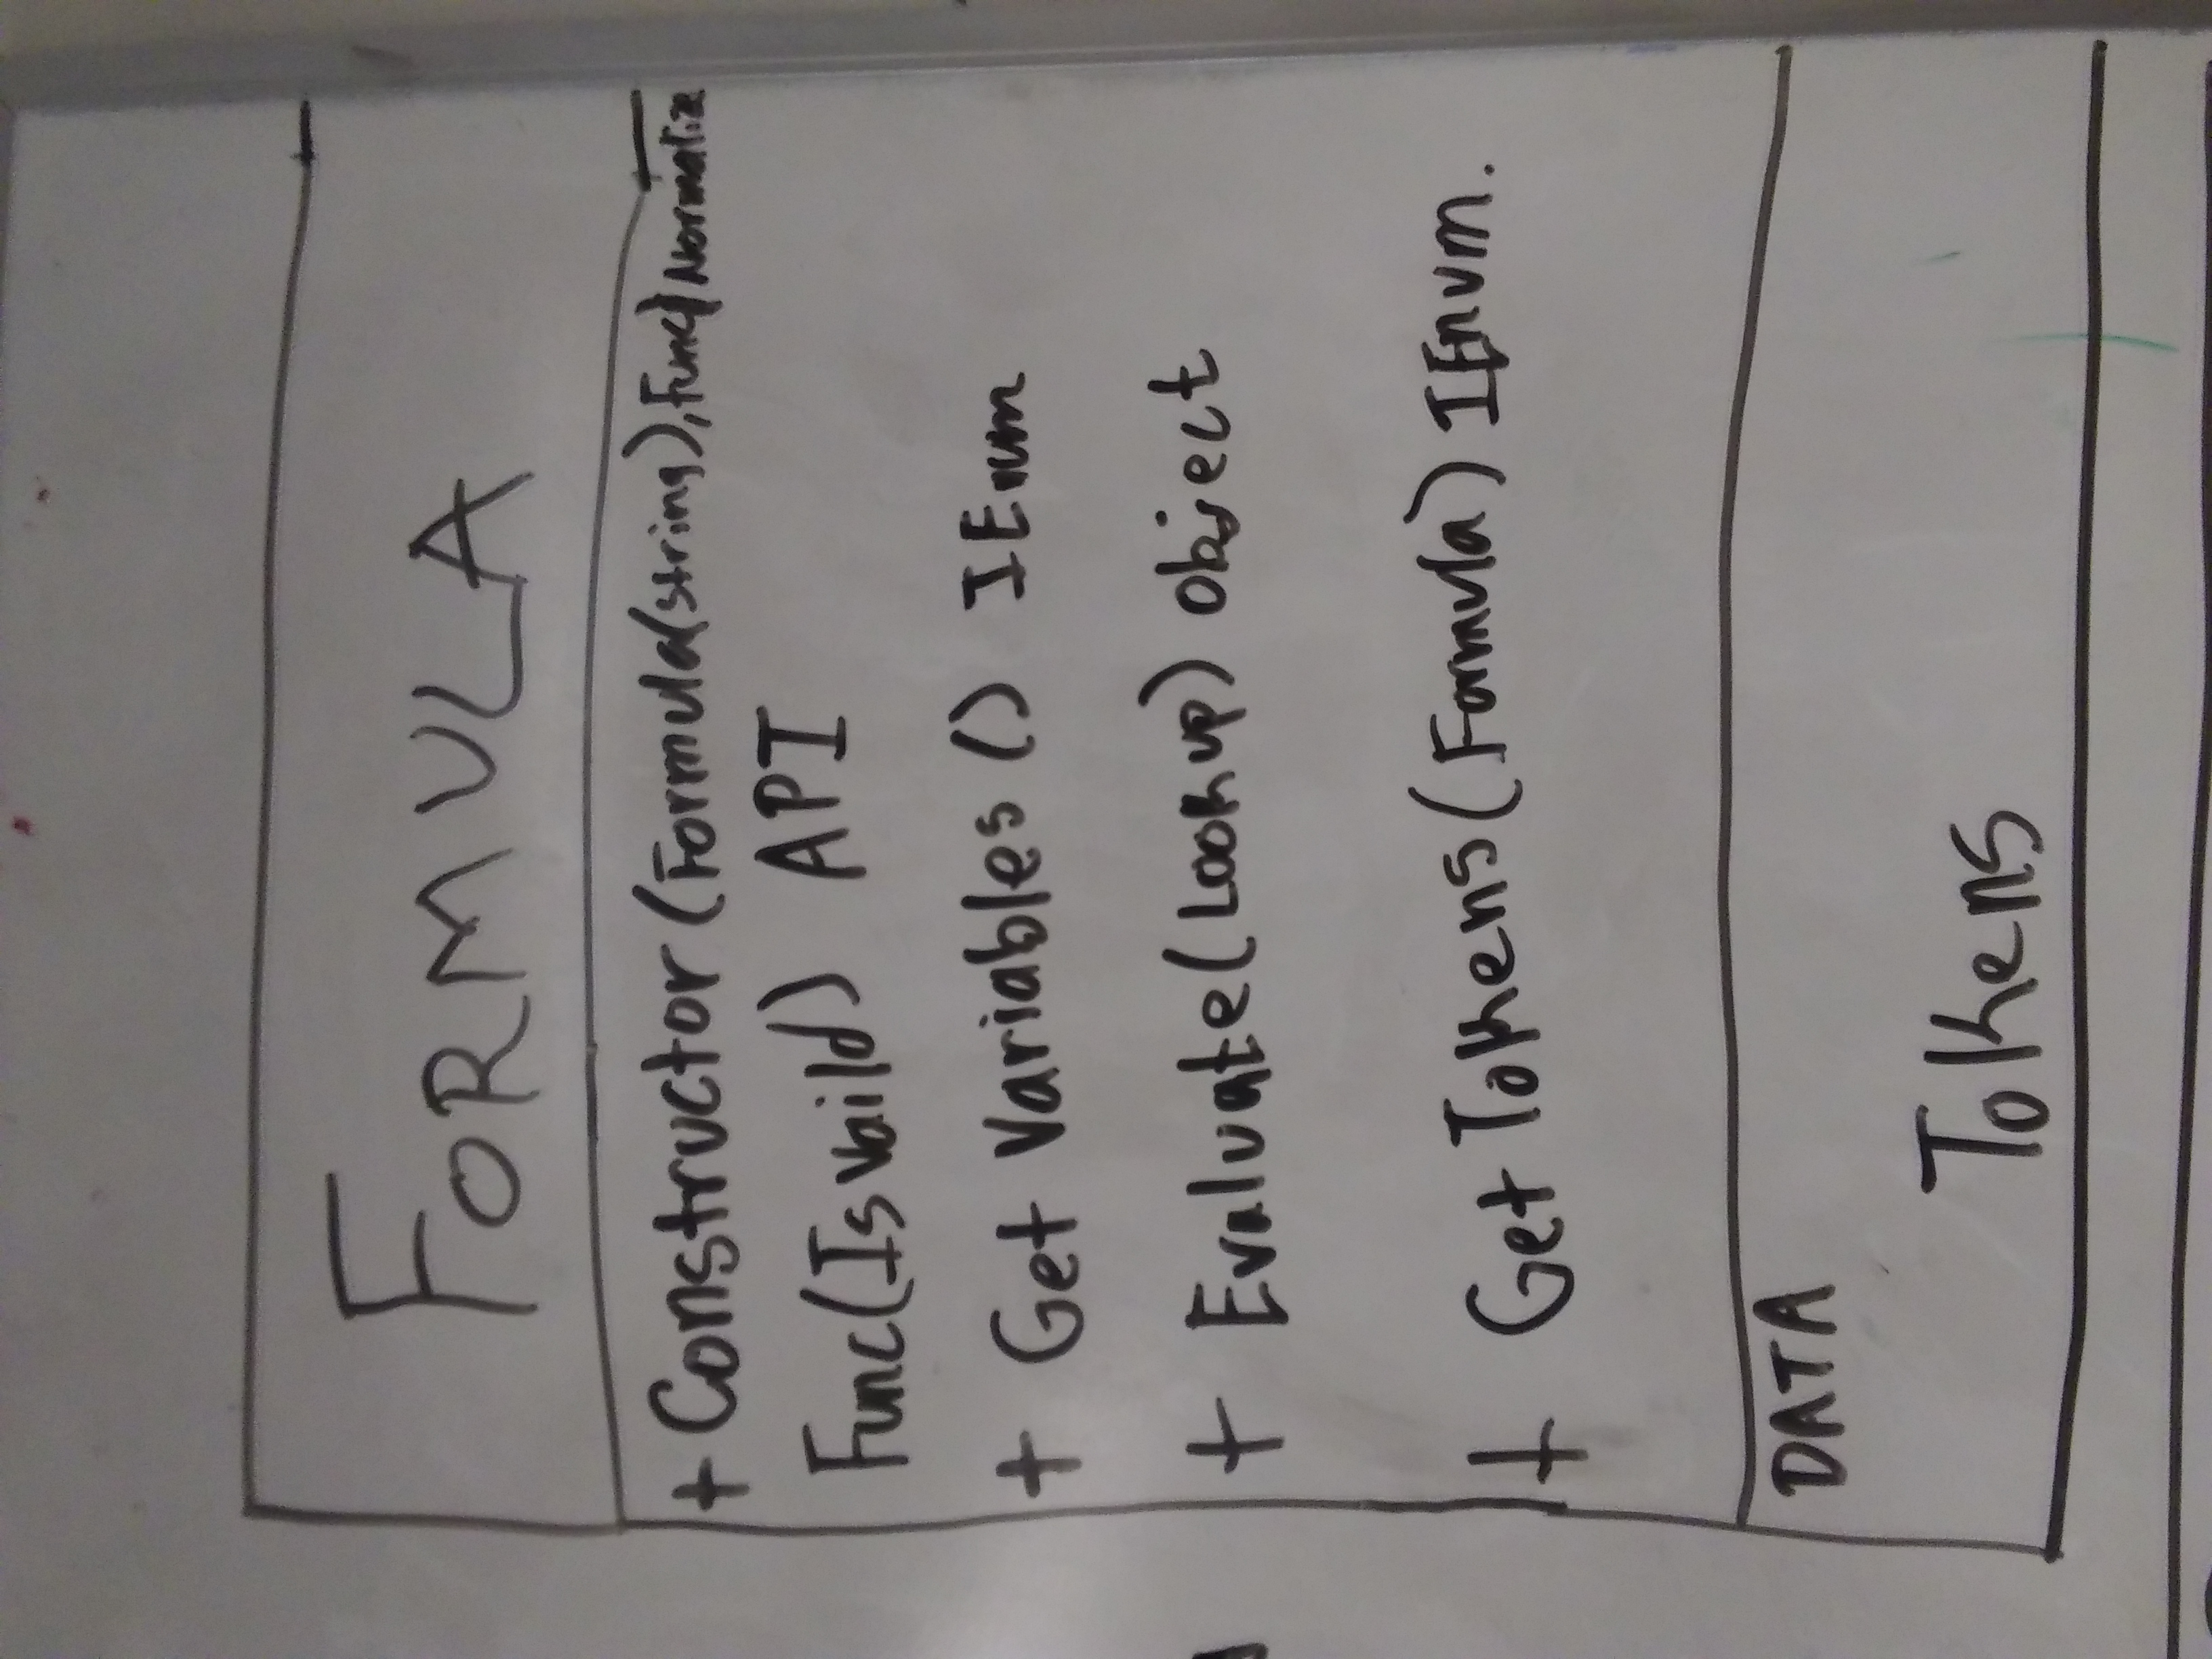 FORMULA
+ Constructor (Formula(string), Func) Normalize
Func(Is vaild) API
+ Get Variables () IEnum
+ Evaluate(Lookup) object
+ Get Tokens (Formula) IEnum.
DATA
Tokens